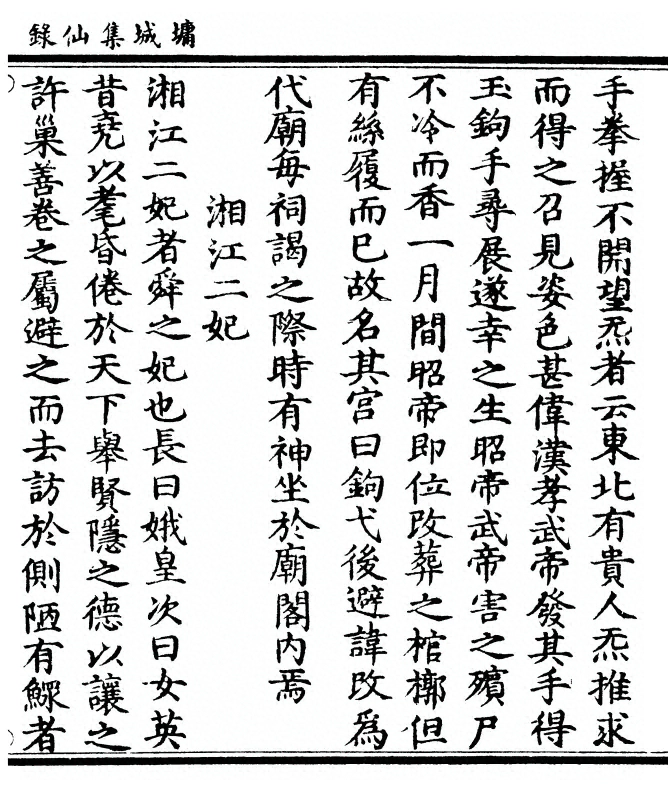 墉城集仙錄
手拳握不開望炁者云東北有貴人炁推求
而得之召見姿色甚偉漢孝武帝發其手得
玉鉤手尋展遂幸之生昭帝武帝害之殯尸
不冷而香一月間昭帝即位改葬之棺槨但
有絲履而已故名其宮曰鉤弋後避諱改爲
代廟每祠謁之際時有神坐於廟閣內焉
湘江二妃
湘江二妃者舜之妃也長曰娥皇次曰女英
昔堯以耄昏倦於天下舉賢隱之德以讓之
許巢善卷之屬避之而去訪於側陋有鰥者